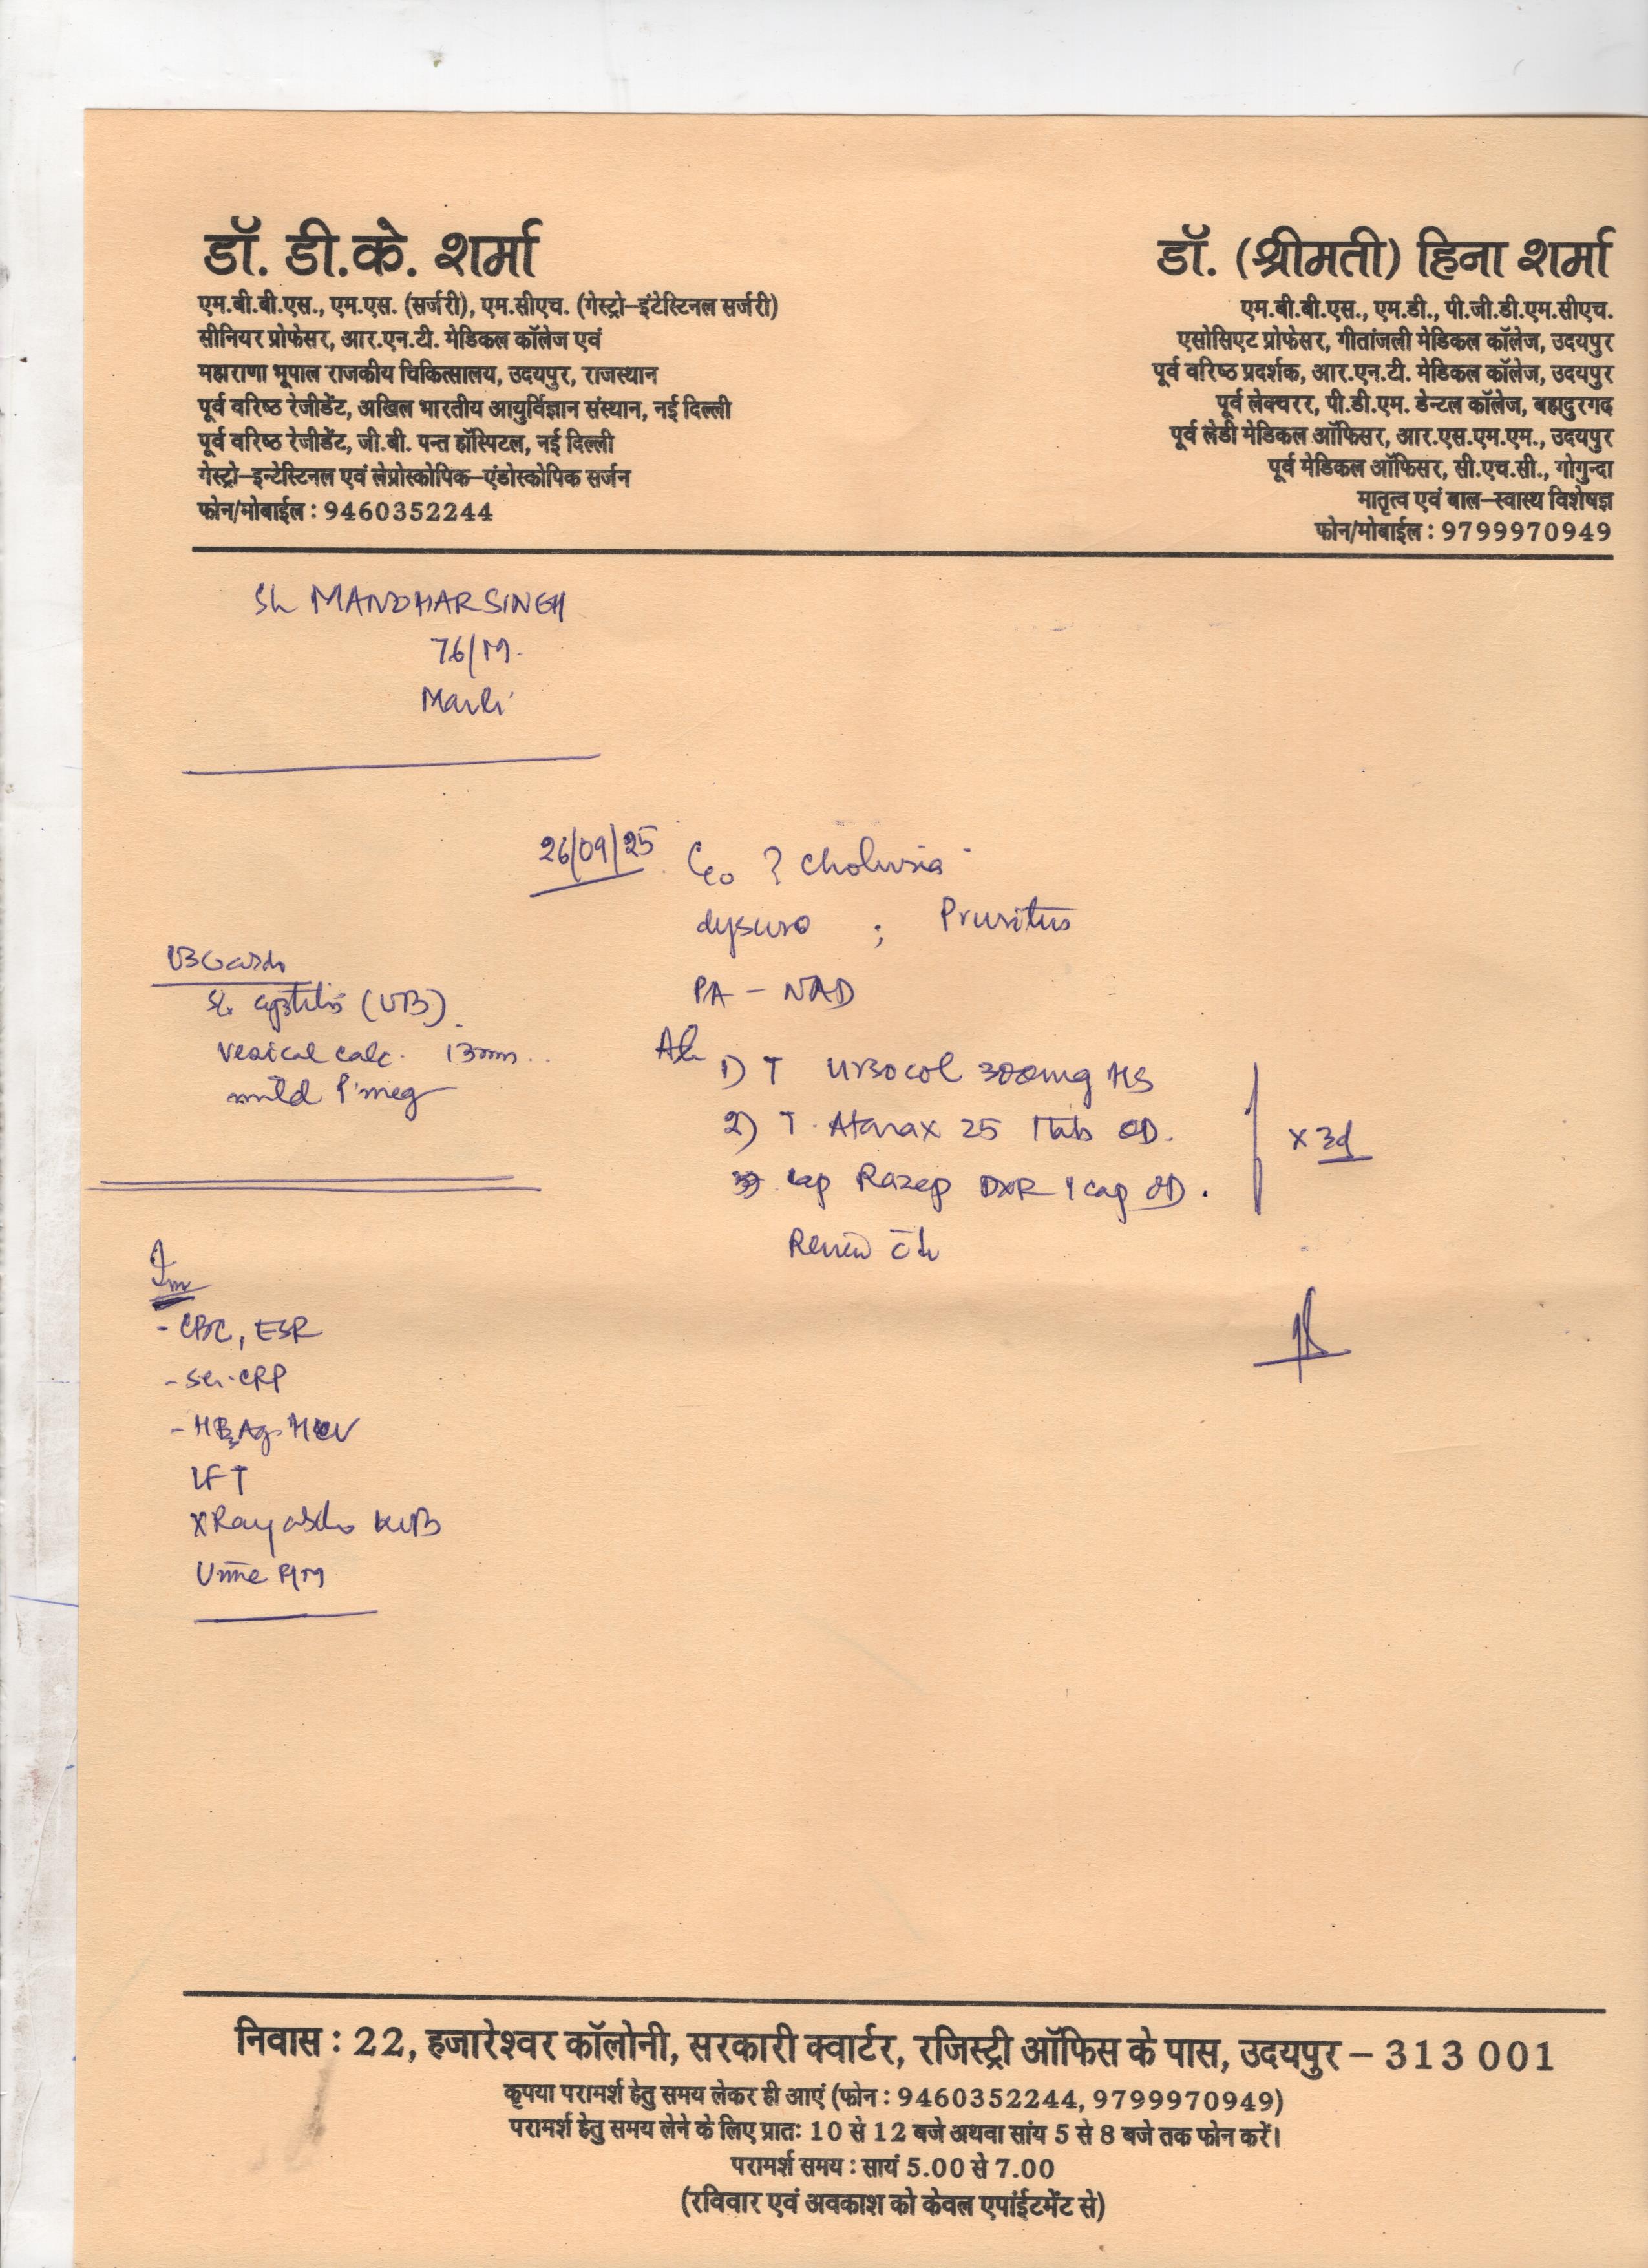 डॉ. डी.के. शर्मा
एम.बी.बी.एस., एम.एस. (सर्जरी), एम.सीएच. (गेस्ट्रो–इंटेस्टिनल सर्जरी)
सीनियर प्रोफेसर, आर.एन.टी. मेडिकल कॉलेज एवं
महाराणा भूपाल राजकीय चिकित्सालय, उदयपुर, राजस्थान
पूर्व वरिष्ठ रेजीडेंट, अखिल भारतीय आयुर्विज्ञान संस्थान, नई दिल्ली
पूर्व वरिष्ठ रेजीडेंट, जी.बी. पन्त हॉस्पिटल, नई दिल्ली
गेस्ट्रो–इन्टेस्टिनल एवं लेप्रोस्कोपिक–एंडोस्कोपिक सर्जन
फोन/मोबाईल : 9460352244
डॉ. (श्रीमती) हिना शर्मा
एम.बी.बी.एस., एम.डी., पी.जी.डी.एम.सीएच.
एसोसिएट प्रोफेसर, गीतांजली मेडिकल कॉलेज, उदयपुर
पूर्व वरिष्ठ प्रदर्शक, आर.एन.टी. मेडिकल कॉलेज, उदयपुर
पूर्व लेक्चरर, पी.डी.एम. डेन्टल कॉलेज, बहादुरगढ
पूर्व लेडी मेडिकल ऑफिसर, आर.एस.एम.एम., उदयपुर
पूर्व मेडिकल ऑफिसर, सी.एच.सी., गोगुन्दा
मातृत्व एवं बाल–स्वास्थ विशेषज्ञ
फोन/मोबाईल : 9799970949
Sh MANOHAR SINGH
76/M.
26/09/25 C/o ? Choluria
dysuria ; Pruritus
PA – NAD
1) T Ursocol 300mg HS
2) T. Atarax 25 1tab OD.
3) Cap Razep DXR 1 cap OD.
x 3d
Review
cystitis (UB).
vesical calc. 13mm..
mild P'meg
- CBC, ESR
- Ser. CRP
- HBsAg, HCV
LFT
X Ray abdo KUB
Urine R/M
निवास : 22, हजारेश्वर कॉलोनी, सरकारी क्वार्टर, रजिस्ट्री ऑफिस के पास, उदयपुर – 313 001
कृपया परामर्श हेतु समय लेकर ही आएं (फोन : 9460352244, 9799970949)
परामर्श हेतु समय लेने के लिए प्रातः 10 से 12 बजे अथवा सांय 5 से 8 बजे तक फोन करें।
परामर्श समय : सायं 5.00 से 7.00
(रविवार एवं अवकाश को केवल एपांईटमेंट से)